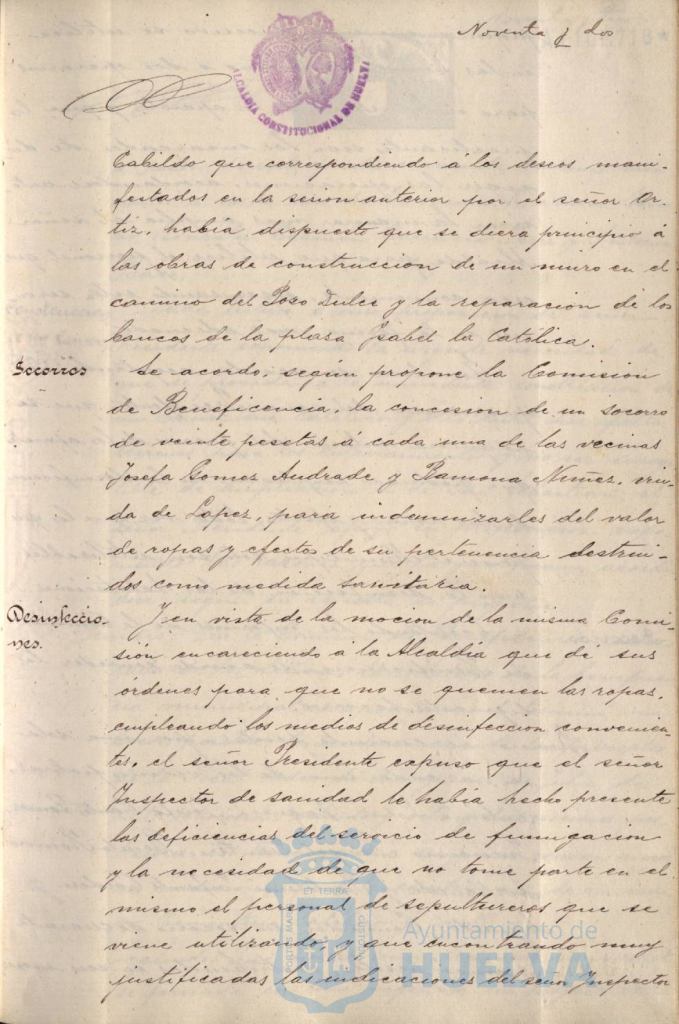 Noventa y dos
ALCALDIA CONSTITUCIONAL DE HUELVA
Cabildo que correspondiendo á los deseos mani-
festados en la sesion anterior por el señor Or-
tiz, habia dispuesto que se diera principio á
las obras de construccion de un muro en el
camino del Pozo Dulce y la reparacion de los
bancos de la plaza Isabel la Católica.
Socorros
Se acordo, según propone la Comision
de Beneficencia, la concesion de un socorro
de veinte pesetas á cada una de las vecinas
Josefa Gomez Andrade y Ramona Nuñez, viu-
da de Lopez, para indemnizarles del valor
de ropas y efectos de su pertenencia destrui-
dos como medida sanitaria.
Desinfeccio-
nes.
Y en vista de la mocion de la misma Comi-
sión encareciendo á la Alcaldía que dé sus
órdenes para que no se quemen las ropas,
empleando los medios de desinfeccion convenien-
tes, el señor Presidente expuso que el señor
Inspector de sanidad le habia hecho presente
las deficiencias del servicio de fumigacion
y la necesidad de que no tome parte en el
mismo el personal de sepultureros que se
viene utilizando, y que encontrando muy
justificadas las indicaciones del señor Inspector
ET TERRA
Ayuntamiento de
HUELVA